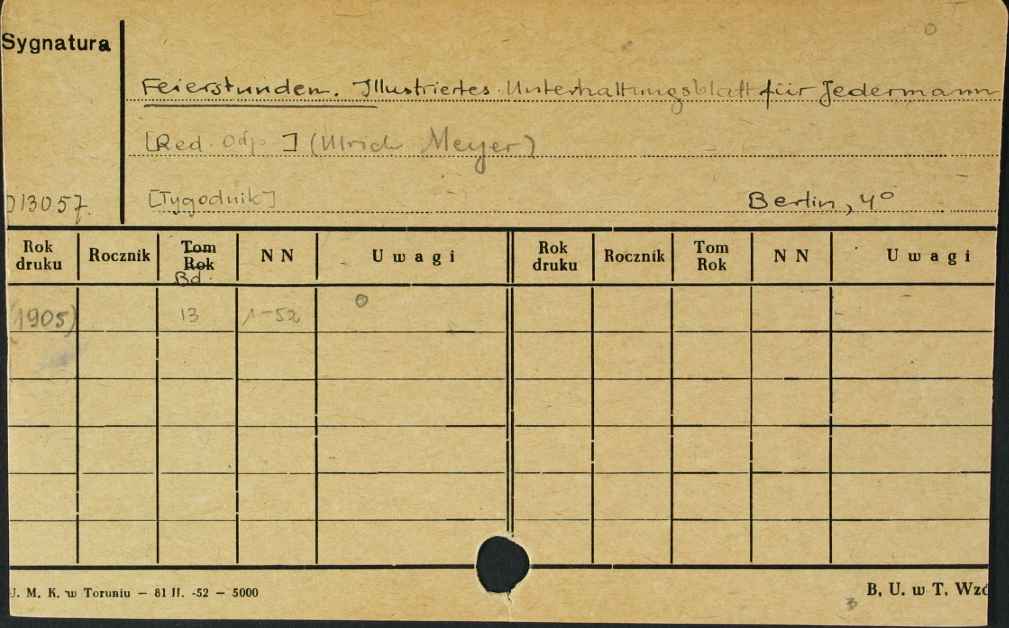 Sygnatura
Feierstunden. Illustriertes Unterhaltungsblatt für Jedermann
[Red. Odp.] (Ulrich Meyer)
013057. [Tygodnik] Berlin, 4°
Rok druku Rocznik Tom Rok Bd. NN Uwagi Rok druku Rocznik Tom Rok NN Uwagi
(1905) 13 1-52 0
U. M. K. w Toruniu — 81 II. -52 — 5000 B. U. w T. Wzó
3